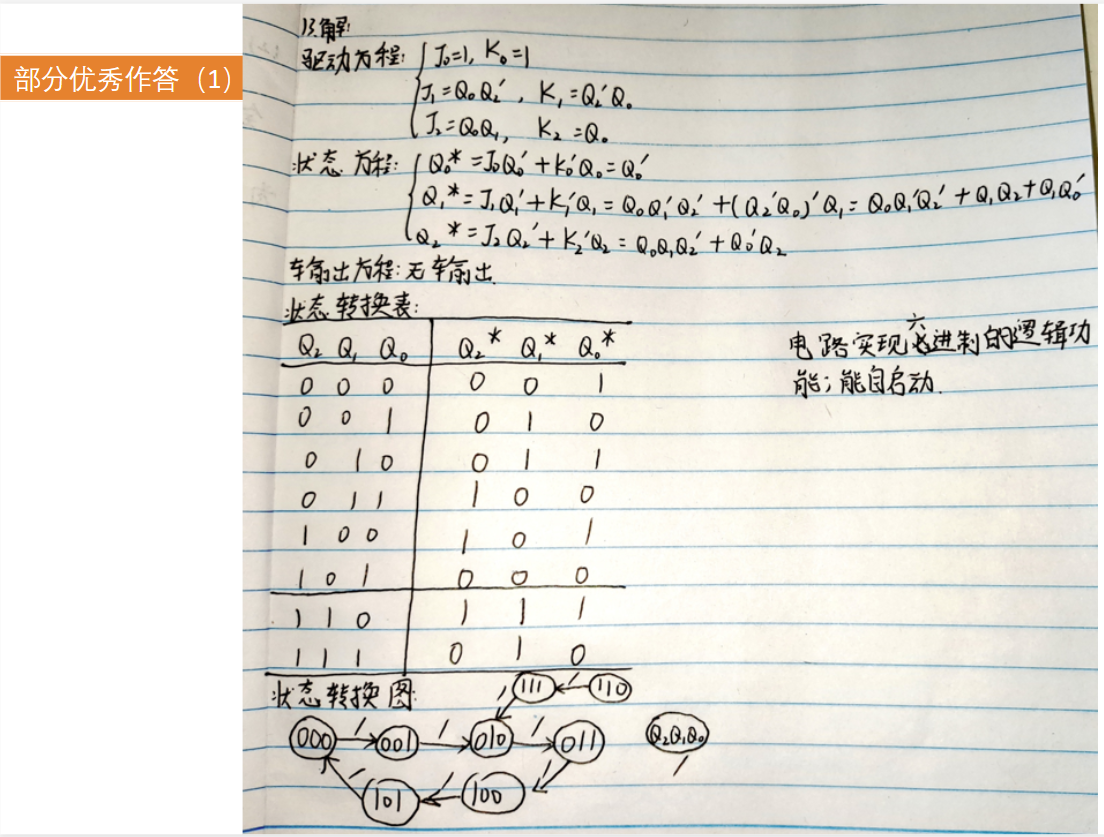 部分优秀作答（1）
13.解:
驱动方程: { J₀=1, K₀=1
J₁=Q₀Q₂′, K₁=Q₂′Q₀
J₂=Q₀Q₁, K₂=Q₀
状态方程: { Q₀*=J₀Q₀′+K₀′Q₀=Q₀′
Q₁*=J₁Q₁′+K₁′Q₁=Q₀Q₁′Q₂′+(Q₂′Q₀)′Q₁=Q₀Q₁′Q₂′+Q₁Q₂+Q₁Q₀′
Q₂*=J₂Q₂′+K₂′Q₂=Q₀Q₁Q₂′+Q₀′Q₂
输出方程:无输出.
状态转换表:
Q₂ Q₁ Q₀ Q₂* Q₁* Q₀*
0 0 0 0 0 1
0 0 1 0 1 0
0 1 0 0 1 1
0 1 1 1 0 0
1 0 0 1 0 1
1 0 1 0 0 0
1 1 0 1 1 1
1 1 1 0 1 0
电路实现六进制的逻辑功
能;能自启动.
状态转换图:
111 ← 110
000 /→ 001 /→ 010 /→ 011
101 /← 100
Q₂Q₁Q₀
/